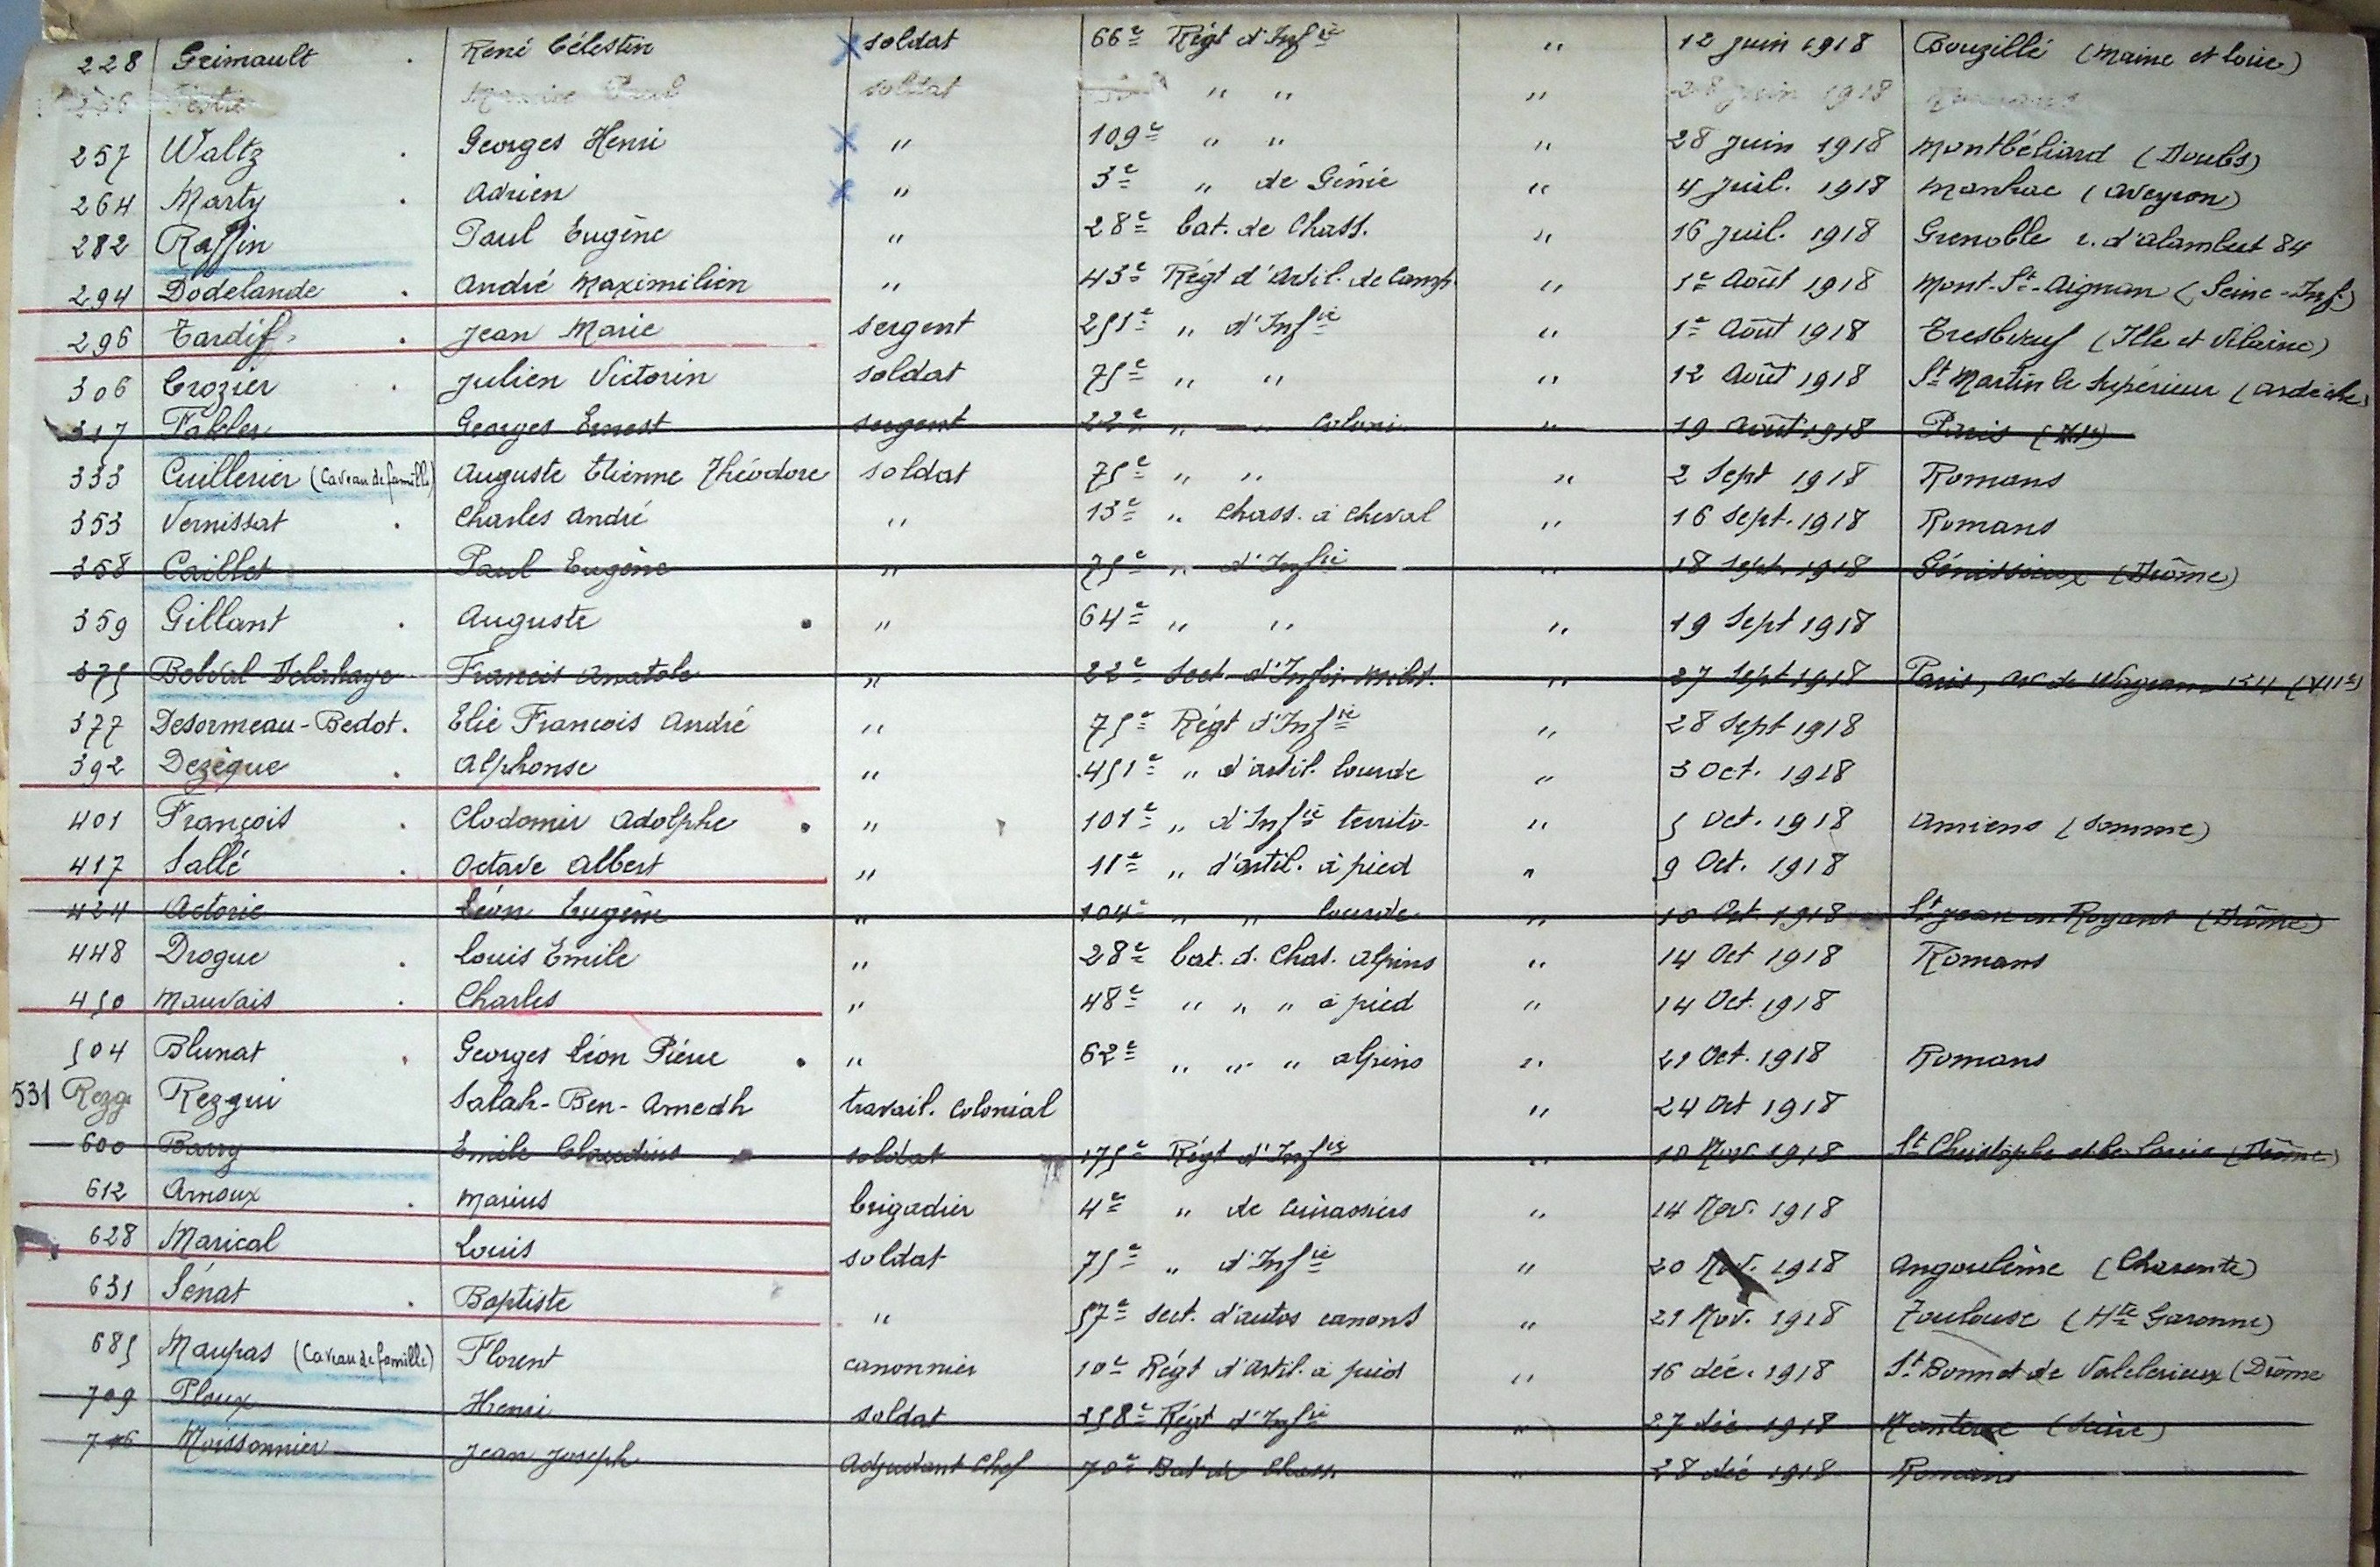 228 Grimault . René Célestin X soldat 66e Régt d'Infie " 12 juin 1918 Bouzillé (Maine et Loire)
soldat " " " 28 juin 1918
257 Waltz . Georges Henri X " 109e " " " 28 Juin 1918 Montbéliard (Doubs)
264 Marty . Adrien X " 3e " de Génie " 4 Juil. 1918 Manhac (Aveyron)
282 Raffin Paul Eugène " 28e bat. de Chass. " 16 juil. 1918 Grenoble r. d'Alambert 84
294 Dodelande . André Maximilien " 43e Régt d'Artil. de Camp. " 1e Août 1918 Mont-St-Aignan (Seine-Inf.)
296 Tardif . Jean Marie sergent 251e " d'Infie " 1e Août 1918 Tresboeuf (Ille et Vilaine)
306 Crozier . Julien Victorin soldat 75e " " " 12 Août 1918 St Martin le Supérieur (Ardèche)
317 Georges Ernest sergent 22e " " Coloni. " 19 août 1918 Paris
333 Cuillerier (Caveau de famille) Auguste Etienne Théodore soldat 75e " " " 2 Sept 1918 Romans
353 Vernissat . Charles André " 13e " Chass. à Cheval " 16 Sept. 1918 Romans
358 Caillet Paul Eugène " 75e " d'Infie " 18 Sept. 1918 Génissieux (Drôme)
359 Gillant . Auguste . " 64e " " " 19 Sept 1918
375 Belval-Delahaye Francis Anatole " 22e Sect. d'Infir. Milit. " 27 Sept 1918 Paris, av. de Wagram 154
377 Desormeau-Bedot . Elie François André " 75e Régt d'Infie " 28 Sept 1918
392 Dezègue . Alphonse " 451e " d'artil. lourde " 3 Oct. 1918
401 François . Clodomir Adolphe . " 101e " d'Infie territo. " 5 Oct. 1918 Amiens (Somme)
417 Sallé . Octave Albert " 11e " d'artil. à pied " 9 Oct. 1918
424 Actorie Léon Eugène " 104e " " lourde " 10 Oct. 1918 St Jean en Royans (Drôme)
448 Drogue . Louis Emile " 28e bat. d. Chas. Alpins " 14 Oct 1918 Romans
450 Mauvais . Charles " 48e " " " à pied " 14 Oct. 1918
504 Blunat . Georges Léon Piérre . " 62e " " " alpins " 21 Oct. 1918 Romans
531 Rezg Rezgui Salah-Ben-Amedh travail. Colonial " 24 Oct 1918
600 Barry Emile Claudius soldat 175e Régt d'Infie " 10 Nov. 1918 St Christophe et le Laris (Drôme)
612 Arnoux . Marius brigadier 4e " de Cuirassiers " 14 Nov. 1918
628 Marical Louis soldat 75e " d'Infie " 20 Nov. 1918 Angoulème (Charente)
631 Sénat . Baptiste " 57e sect. d'autos canons " 21 Nov. 1918 Toulouse (Hte Garonne)
685 Maupas (Caveau de famille) Florent canonnier 10e Régt d'Artil. à pied " 16 déc. 1918 St Bonnet de Valclerieux (Drôme
709 Ploux Henri soldat 158e Régt d'Infie " 27 déc. 1918
Moissonnier Jean Joseph Adjudant Chef 70e Bat de Chass. " 28 déc 1918 Romans